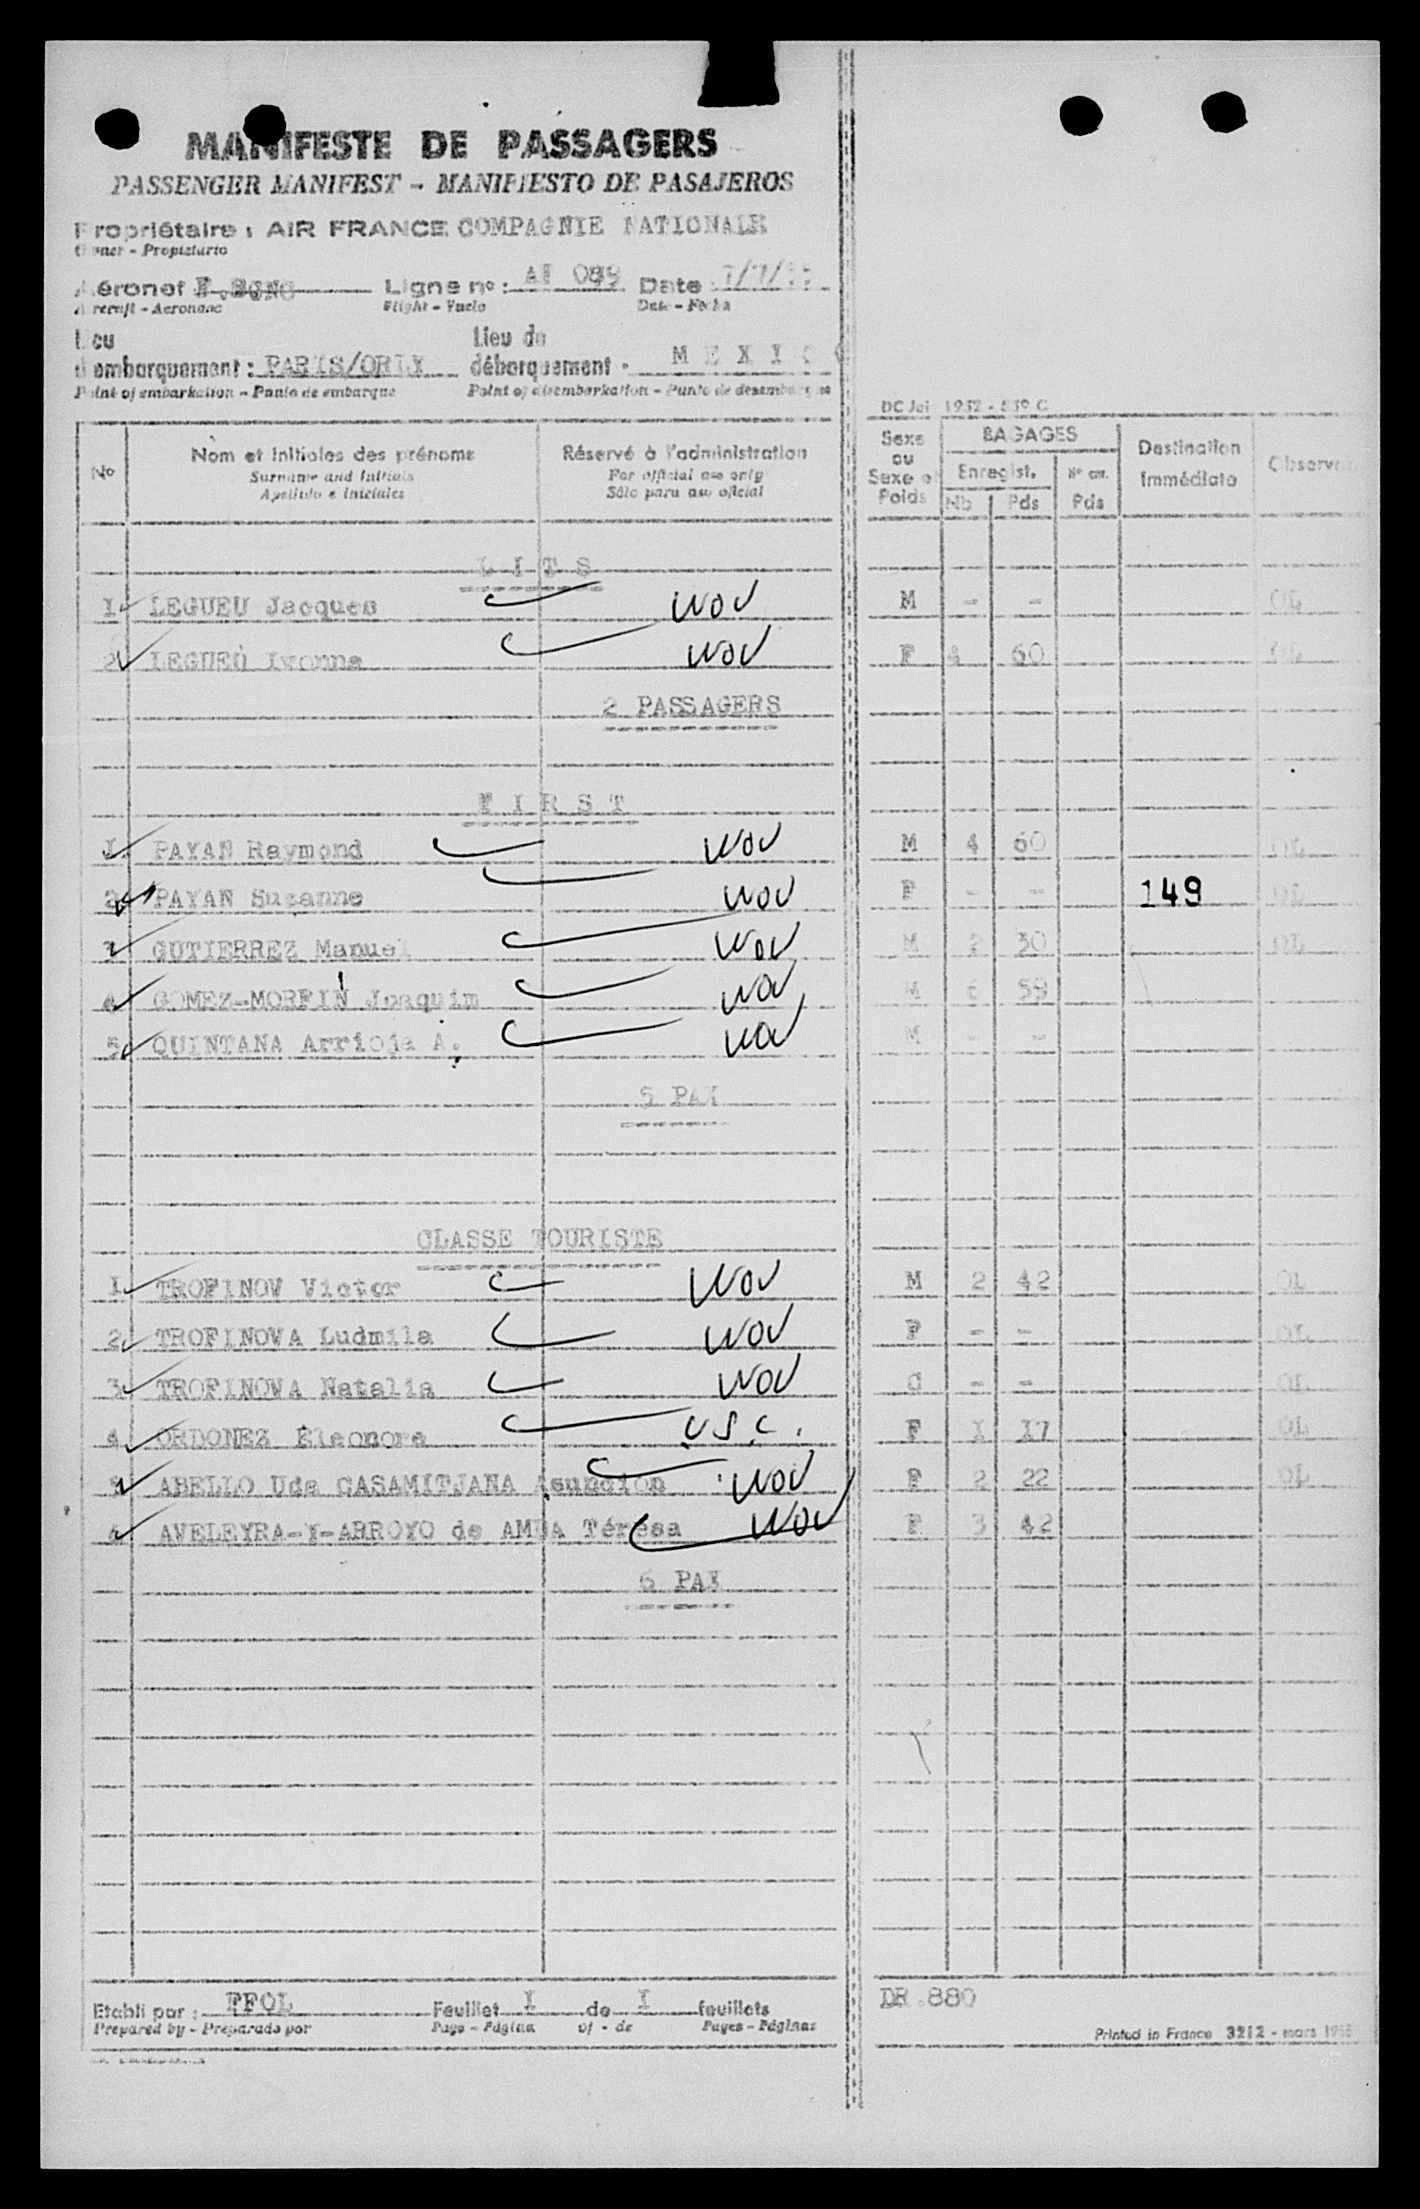 MANIFESTE DE PASSAGERS
PASSENGER MANIFEST - MANIFIESTO DE PASAJEROS
Propriétaire : AIR FRANCE COMPAGNIE NATIONALE
Owner - Propietario
Aéronef Ligne no : AF 089 Date 7/7/55
Aircraft - Aeronane Flight - Vuelo Date - Fecha
Lieu Lieu de
d'embarquement : PARIS/ORLY débarquement : MEXICO
Point of embarkation - Punto de embarque Point of disembarkation - Punto de desembarque
DC Jui 1952 - 539 C
No Nom et initiales des prénoms Réservé à l'administration Sexe ou Sexe et Poids BAGAGES Destination immédiate Observa
Surname and initials For official use only Enregist. Nº cav.
Apellido e iniciales Sólo para uso oficial Nb Pds Pds
LITS
1 LEGUEU Jacques WOV M - - OL
2 LEGUEU Ivonne WOV F 4 60 OL
2 PASSAGERS
FIRST
1. PAYAN Raymond WOV M 4 60 OL
2 PAYAN Suzanne WOV F - - 149 OL
3 GUTIERREZ Manuel WOV M 2 30 OL
4 GOMEZ-MORFIN Joaquim WOV M 6 59
5 QUINTANA Arrioja A. WOV M - -
5 PAX
CLASSE TOURISTE
1 TROFINOV Victor WOV M 2 42 OL
2 TROFINOVA Ludmila WOV F - - OL
3 TROFINOVA Natalia WOV C - - OL
4 ORDONEZ Eleonore U.S.C. F 1 17 OL
5 ABELLO Uda CASAMITJANA Asuncion WOV F 2 22 OL
6 AVELEYRA-Y-ARROYO de Téresa WOV F 3 42
6 PAX
Etabli par : FFOL Feuillet I de I feuillets DR.880
Prepared by - Preparado por Page - Página of - de Pages - Páginas Printed in France 3212 - mars